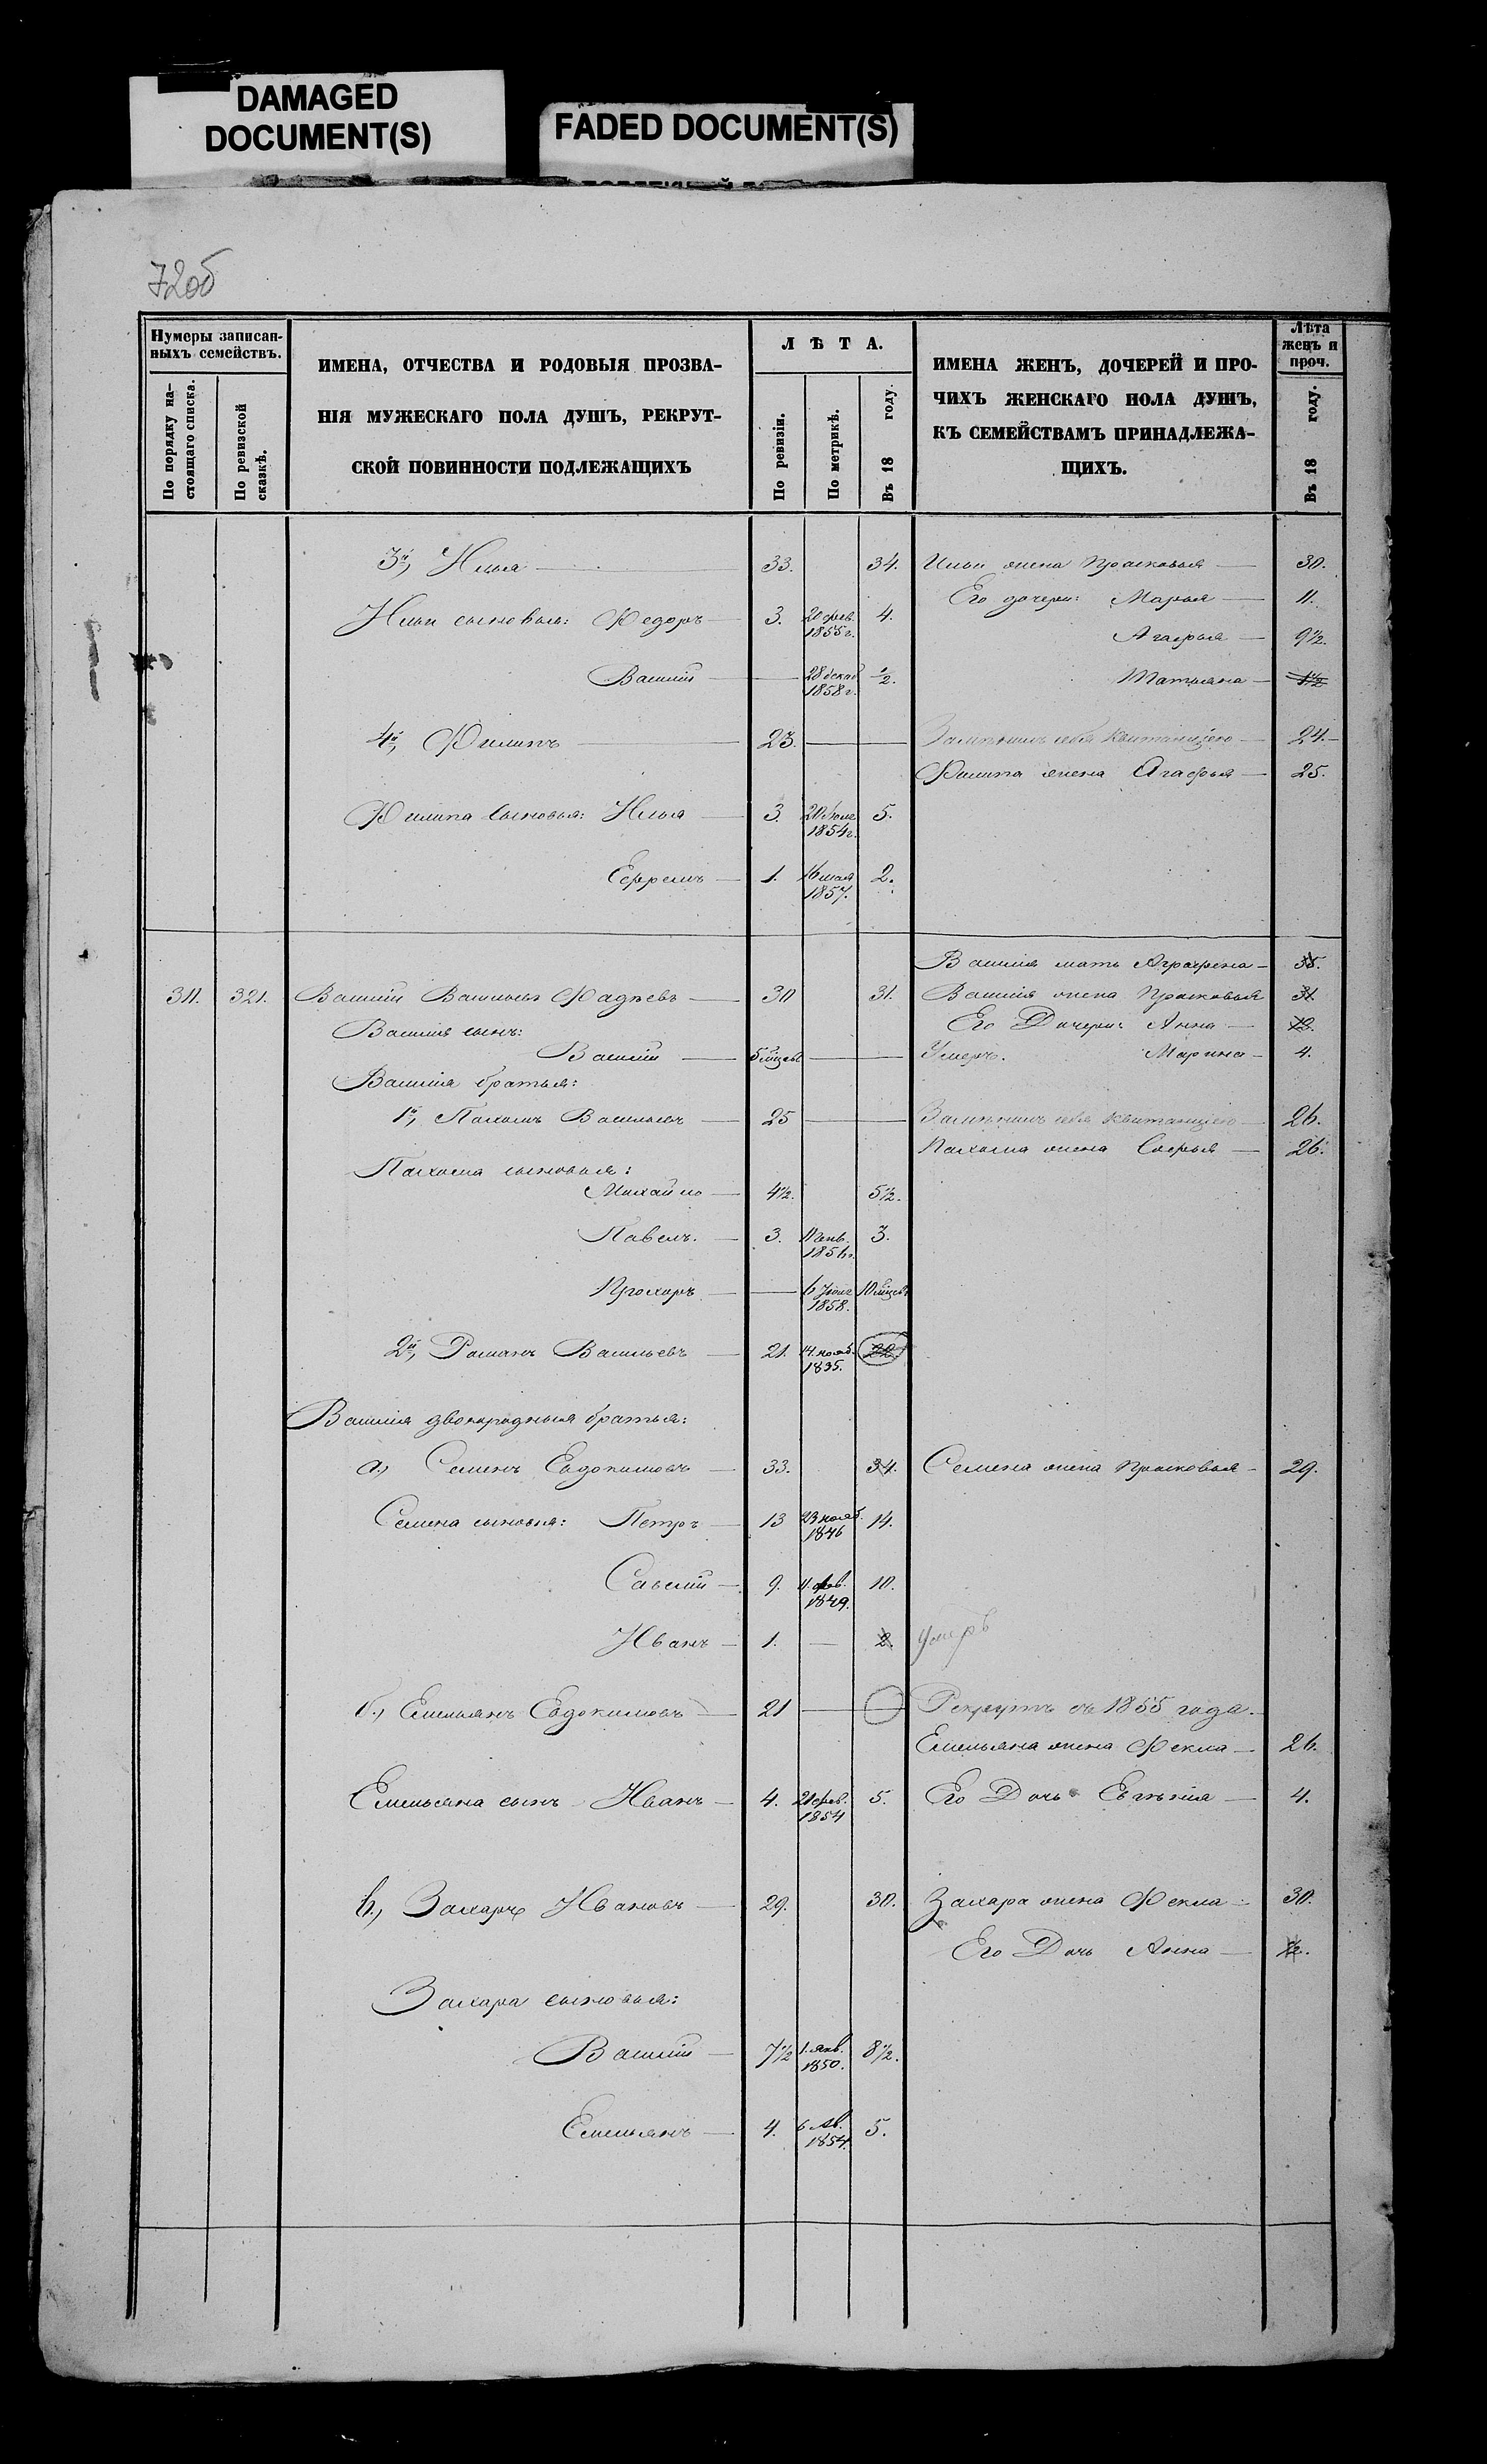 DAMAGED
DOCUMENT(S)
FADED DOCUMENT(S)
72об
Нумеры записан-
ныхъ семействъ.
По порядку на-
стоящаго списка.
По ревизской
сказкѣ.
ИМЕНА, ОТЧЕСТВА И РОДОВЫЯ ПРОЗВА-
НІЯ МУЖЕСКАГО ПОЛА ДУШЪ, РЕКРУТ-
СКОЙ ПОВИННОСТИ ПОДЛЕЖАЩИХЪ
ЛѢТА.
По ревизіи.
По метрикѣ.
Въ 18 году.
ИМЕНА ЖЕНЪ, ДОЧЕРЕЙ И ПРО-
ЧИХЪ ЖЕНСКАГО ПОЛА ДУШЪ,
КЪ СЕМЕЙСТВАМЪ ПРИНАДЛЕЖА-
ЩИХЪ.
Лѣта
женъ и
проч.
Въ 18 году.
3й, Илья — 33. 34. Ильи жена Прасковья — 30.
Его дочери: Марья — 11.
Ильи сыновья: Федоръ — 3. 20 фев. 1855 г. 4.
Агафья — 9½.
Василій — 28 декаб. 1858 г. ½. Татьяна — 1½
4й, Филипъ — 23. — Замѣнилъ себя квитанціею — 24.
Филипа жена Агафья — 25.
Филипа сыновья: Илья — 3. 20 Июля 1854 г. 5.
Ефремъ — 1. 16 мая 1857. 2.
Василія мать Аграфена —
311. 321. Василій Васильевъ Фадѣевъ — 30 31. Василія жена Прасковья 31.
Василія сынъ: Его Дочери: Анна —
Василій — 6 мцевъ — Умеръ. Марина — 4.
Василія братья:
1й, Пахомъ Васильевъ — 25 — Замѣнилъ себя квитанціею — 26.
Пахома жена Софья — 26.
Пахома сыновья:
Михайло — 4½. 5½.
Павелъ. — 3. 3.
1856 г.
Прохоръ — 6 Июля 1858. 10 мцевъ
2й, Романъ Васильевъ — 21. 14 нояб. 1835. 22.
Василія двоюродныя братья:
а) Семенъ Евдокимовъ — 33. 34. Семена жена Прасковья — 29.
Семена сыновья: Петръ — 13 23 нояб. 1846 14.
Савелій — 9. 11. фев. 1849. 10.
Иванъ — 1. — 2. Умеръ
б.) Емельянъ Евдокимовъ — 21 — Рекрутъ съ 1855 года.
Емельяна жена Фекла — 26.
Емельяна сынъ Иванъ — 4. 21 фев. 1854 5. Его Дочь Евгѣнія — 4.
в.) Захаръ Ивановъ — 29. 30. Захара жена Фекла — 30.
Его Дочь Анна — ½.
Захара сыновья:
Василій — 7½ 1. янв. 1850. 8½.
Емельянъ — 4. 6 1854. 5.